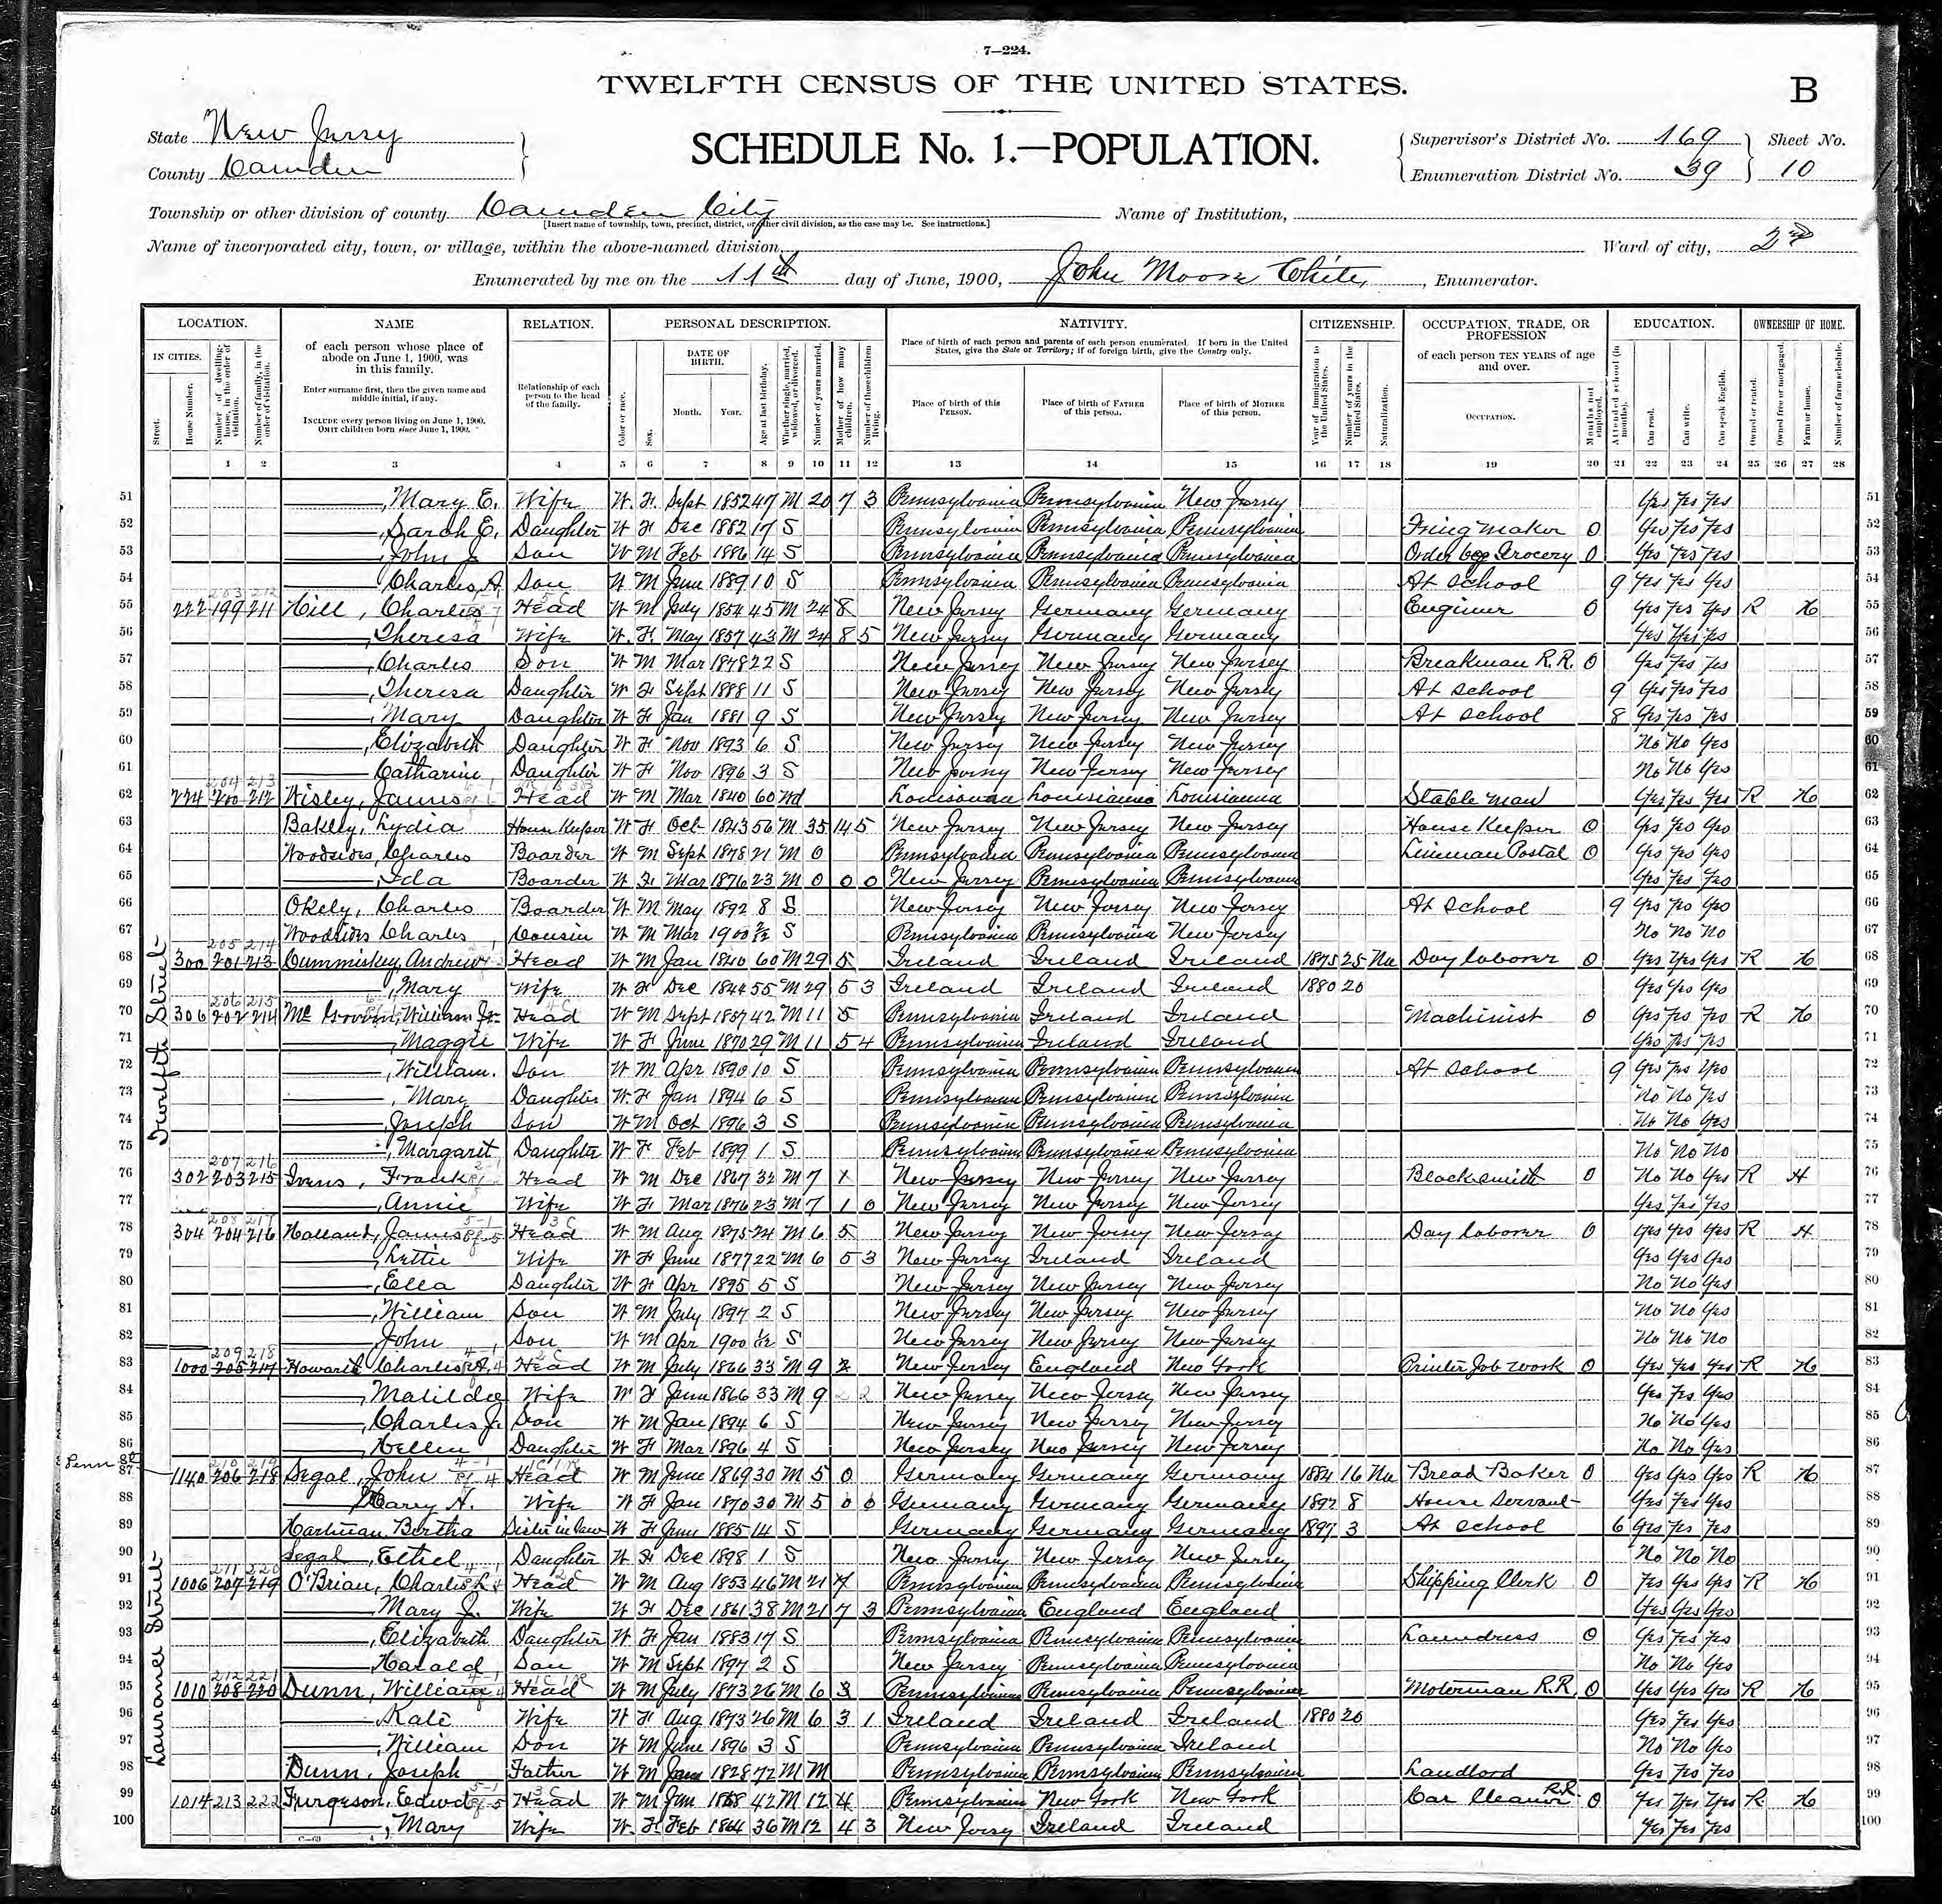 7—224.
TWELFTH CENSUS OF THE UNITED STATES.
B
State New Jersey
County Camden
SCHEDULE No. 1.—POPULATION.
Supervisor's District No. 169
Enumeration District No. 39
Sheet No.
10
Township or other division of county Camden City
[Insert name of township, town, precinct, district, or other civil division, as the case may be. See instructions.]
Name of Institution,
Name of incorporated city, town, or village, within the above-named division,
Ward of city, 2nd
Enumerated by me on the 11th day of June, 1900, John Moore White, Enumerator.
LOCATION. NAME RELATION. PERSONAL DESCRIPTION. NATIVITY. CITIZENSHIP. OCCUPATION, TRADE, OR PROFESSION EDUCATION. OWNERSHIP OF HOME.
IN CITIES.
Street.
House Number.
Number of dwelling-house, in the order of visitation.
Number of family, in the order of visitation.
of each person whose place of abode on June 1, 1900, was in this family.
Enter surname first, then the given name and middle initial, if any.
INCLUDE every person living on June 1, 1900.
OMIT children born since June 1, 1900.
Relationship of each person to the head of the family.
Color or race.
Sex.
DATE OF BIRTH.
Month. Year.
Age at last birthday.
Whether single, married, widowed, or divorced.
Number of years married.
Mother of how many children.
Number of these children living.
Place of birth of each person and parents of each person enumerated. If born in the United States, give the State or Territory; if of foreign birth, give the Country only.
Place of birth of this PERSON.
Place of birth of FATHER of this person.
Place of birth of MOTHER of this person.
Year of immigration to the United States.
Number of years in the United States.
Naturalization.
of each person TEN YEARS of age and over.
OCCUPATION.
Months not employed.
Attended school (in months).
Can read.
Can write.
Can speak English.
Owned or rented.
Owned free or mortgaged.
Farm or house.
Number of farm schedule.
1 2 3 4 5 6 7 8 9 10 11 12 13 14 15 16 17 18 19 20 21 22 23 24 25 26 27 28
51 ——, Mary E. Wife W F Sept 1852 47 M 20 7 3 Pennsylvania Pennsylvania New Jersey Yes Yes Yes 51
52 ——, Sarah E. Daughter W F Dec 1882 17 S Pennsylvania Pennsylvania Pennsylvania Fring Maker 0 Yes Yes Yes 52
53 ——, John J. Son W M Feb 1886 14 S Pennsylvania Pennsylvania Pennsylvania Order Grocery 0 Yes Yes Yes 53
54 —— Charles, A, Son W M June 1889 10 S Pennsylvania Pennsylvania Pennsylvania At school 9 Yes Yes Yes 54
55 222 199 211 Hill, Charles Head W M July 1854 45 M 24 8 New Jersey Germany Germany Enginer 0 Yes Yes Yes R H 55
56 ——, Theresa Wife W F May 1857 43 M 24 8 5 New Jersey Germany Germany Yes Yes Yes 56
57 ——, Charles Son W M Mar 1878 22 S New Jersey New Jersey New Jersey Breakman R.R. 0 Yes Yes Yes 57
58 ——, Theresa Daughter W F Sept 1888 11 S New Jersey New Jersey New Jersey At school 9 Yes Yes Yes 58
59 ——, Mary Daughter W F Jan 1881 9 S New Jersey New Jersey New Jersey At school 8 Yes Yes Yes 59
60 ——, Elizabeth Daughter W F Nov 1893 6 S New Jersey New Jersey New Jersey No No Yes 60
61 —— Catharine, Daughter W F Nov 1896 3 S New Jersey New Jersey New Jersey No No Yes 61
62 224 200 212 Wisley, James Head W M Mar 1840 60 Wd Louisianna Louisianna Louisianna Stable man Yes Yes Yes R H 62
63 Bakley, Lydia House Keeper W F Oct 1843 56 M 35 14 5 New Jersey New Jersey New Jersey House Keeper 0 Yes Yes Yes 63
64 Woodsides, Charles Boarder W M Sept 1878 21 M 0 Pennsylvania Pennsylvania Pennsylvania Lineman Postal 0 Yes Yes Yes 64
65 ——, Ida Boarder W F Mar 1876 23 M 0 0 0 New Jersey Pennsylvania Pennsylvania Yes Yes Yes 65
66 Okely, Charles Boarder W M May 1892 8 S New Jersey New Jersey New Jersey At School 9 Yes Yes Yes 66
67 Woodsides Charles Cousin W M Mar 1900 2/12 S Pennsylvania Pennsylvania New Jersey No No No 67
68 300 201 213 Cummiskey, Andrew Head W M Jan 1840 60 M 29 5 Ireland Ireland Ireland 1875 25 Na Day laborer 0 Yes Yes Yes R H 68
69 ——, Mary Wife W F Dec 1844 55 M 29 5 3 Ireland Ireland Ireland 1880 20 Yes Yes Yes 69
70 306 202 214 William Jr. Head W M Sept 1857 42 M 11 5 Pennsylvania Ireland Ireland Machinist 0 Yes Yes Yes R H 70
71 ——, Maggie Wife W F June 1870 29 M 11 5 4 Pennsylvania Ireland Ireland Yes Yes Yes 71
72 ——, William. Son W M Apr 1890 10 S Pennsylvania Pennsylvania Pennsylvania At School 9 Yes Yes Yes 72
73 ——, Mary Daughter W F Jan 1894 6 S Pennsylvania Pennsylvania Pennsylvania No No Yes 73
74 ——, Joseph Son W M Oct 1896 3 S Pennsylvania Pennsylvania Pennsylvania No No Yes 74
75 ——, Margaret Daughter W F Feb 1899 1 S Pennsylvania Pennsylvania Pennsylvania No No No 75
76 302 203 215 Ivens, Frank Head W M Dec 1867 32 M 7 1 New Jersey New Jersey New Jersey Blacksmith 0 No No Yes R H 76
77 ——, Annie Wife W F Mar 1876 23 M 7 1 0 New Jersey New Jersey New Jersey Yes Yes Yes 77
78 304 204 216 Holland, James Head W M Aug 1875 24 M 6 5 New Jersey New Jersey New Jersey Day laborer 0 Yes Yes Yes R H 78
79 ——, Lettie Wife W F June 1877 22 M 6 5 3 New Jersey Ireland Ireland Yes Yes Yes 79
80 ——, Ella Daughter W F Apr 1895 5 S New Jersey New Jersey New Jersey No No Yes 80
81 ——, William Son W M July 1897 2 S New Jersey New Jersey New Jersey No No Yes 81
82 ——, John Son W M Apr 1900 1/12 S New Jersey New Jersey New Jersey No No No 82
Twelfth Street
83 1000 205 217 Howarth Charles A, Head W M July 1866 33 M 9 2 New Jersey England New York Printer Job work 0 Yes Yes Yes R H 83
84 ——, Matilda Wife W F June 1866 33 M 9 2 2 New Jersey New Jersey New Jersey Yes Yes Yes 84
85 ——, Charles J. Son W M Jan 1894 6 S New Jersey New Jersey New Jersey No No Yes 85
86 ——, Hellen Daughter W F Mar 1896 4 S New Jersey New Jersey New Jersey No No Yes 86
Penn St
87 1140 206 218 Segal, John Head W M June 1869 30 M 5 0 Germany Germany Germany 1884 16 Na Bread Baker 0 Yes Yes Yes R H 87
88 —— Mary A. Wife W F Jan 1870 30 M 5 0 0 Germany Germany Germany 1892 8 House Servant Yes Yes Yes 88
89 Hartman Bertha Sister in law W F June 1885 14 S Germany Germany Germany 1897 3 At school 6 Yes Yes Yes 89
90 Segal, Ethel, Daughter W F Dec 1898 1 S New Jersey New Jersey New Jersey No No No 90
91 1006 207 219 O'Brian, Charles L Head W M Aug 1853 46 M 21 7 Pennsylvania Pennsylvania Pennsylvania Shipping Clerk 0 Yes Yes Yes R H 91
92 ——, Mary J. Wife W F Dec 1861 38 M 21 7 3 Pennsylvania England England Yes Yes Yes 92
93 ——, Elizabeth Daughter W F Jan 1883 17 S Pennsylvania Pennsylvania Pennsylvania Laundress 0 Yes Yes Yes 93
94 ——, Harald Son W M Sept 1897 2 S New Jersey Pennsylvania Pennsylvania No No Yes 94
95 1010 208 220 Dunn, William Head W M July 1873 26 M 6 3 Pennsylvania Pennsylvania Pennsylvania Moterman R.R. 0 Yes Yes Yes R H 95
96 ——, Kate Wife W F Aug 1873 26 M 6 3 1 Ireland Ireland Ireland 1880 20 Yes Yes Yes 96
97 ——, William Son W M June 1896 3 S Pennsylvania Pennsylvania Ireland No No Yes 97
98 Dunn, Joseph Father W M June 1828 72 M M Pennsylvania Pennsylvania Pennsylvania Landlord Yes Yes Yes 98
99 1014 213 222 Furgeson, Edwd Head W M Jan 1858 42 M 12 4 Pennsylvania New York New York Car Cleaner R.R. 0 Yes Yes Yes R H 99
100 ——, Mary Wife W F Feb 1864 36 M 12 4 3 New Jersey Ireland Ireland Yes Yes Yes 100
Laurance Street